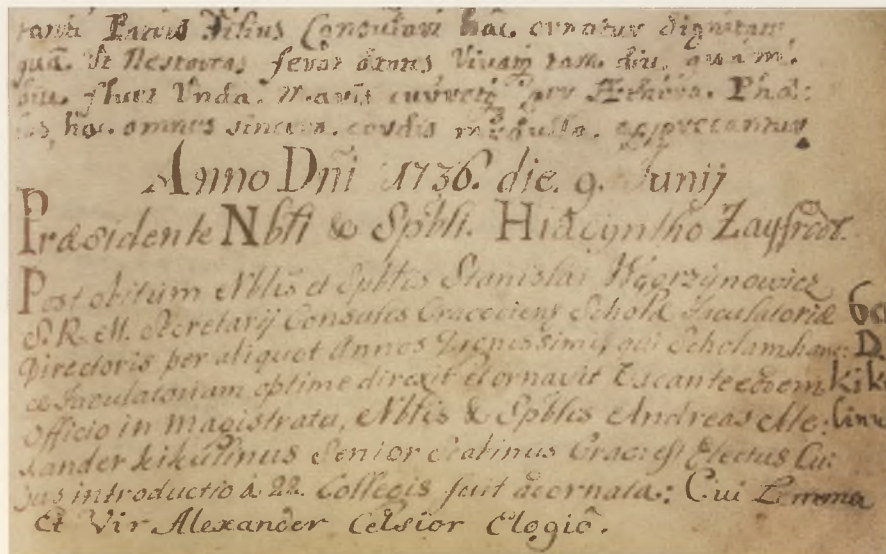 Patris Filius Consulari hac ornatur dignitate
quā. Ut Nestoreas feror annos Vivatq tam. diu. quam.
diu. fluet Unda. Maris curretq per Æthera. Phæ:
bus, hoc omnes sincera. cordis medulla. apprecantur
Anno Dñi 1736. die. 9. Junij
Præsidente Nbti & Spbli. Hiacyntho Zayfrodt.
Post obitum Nblis et Spblis Stanislai Węgrzynowicz
S. R. M. Secretarij Consulis Cracoviens Scholæ Jaculatoriæ
Directoris per aliquot Annos Dignissimi, qui Scholam hanc:
ce Jaculatoriam optime direxit et ornavit Vacante eodem
Officio in Magistratu, Nblis & Spblis Andreas Ale:
xander Kikulinus Senior Scabinus Crac: est Electus Cu:
jus introductio à 22. Collegis fuit adornata: Cui Lemma
Et Vir Alexander Celsior Elogiô.
D
kik
linu